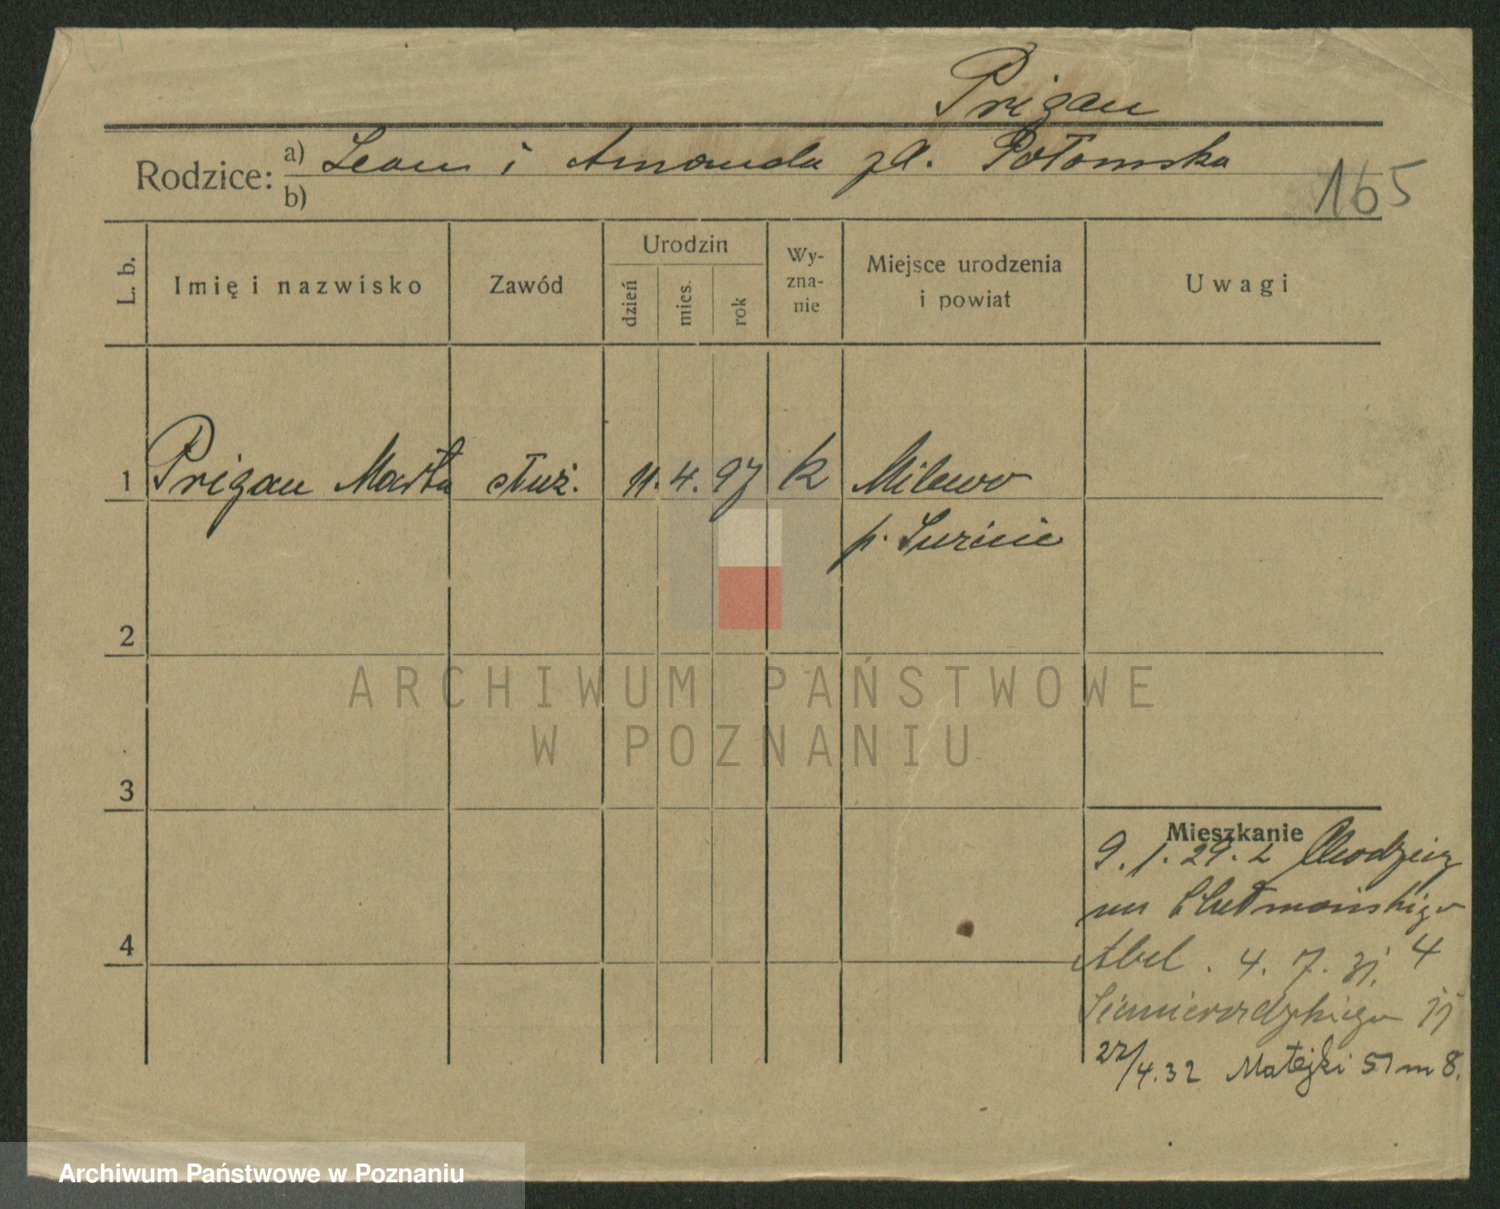 Prigan
Rodzice: a) Leon i Amanda zd. Połomska
b)
165
L. b.
Imię i nazwisko
Zawód
Urodzin
dzień
mies.
rok
Wy-
zna-
nie
Miejsce urodzenia
i powiat
Uwagi
1 Prigan Marta służ. 11. 4. 97 k Milewo
p. Świecie
2
ARCHIWUM PAŃSTWOWE
W POZNANIU
3
Mieszkanie
9. 1. 29. z Chodzież
4
Abel. 4. 7. 31. 4
Siemieradzkiego
22/4.32 Matejki 51 m 8.
Archiwum Państwowe w Poznaniu